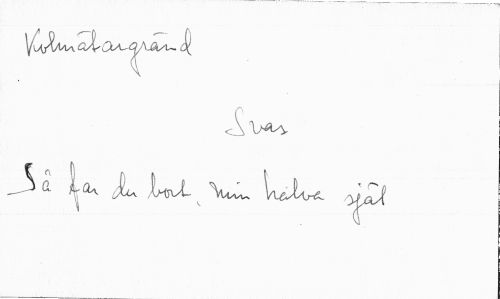 Kolmätargränd
Svar
Så far du bort, min halva själ